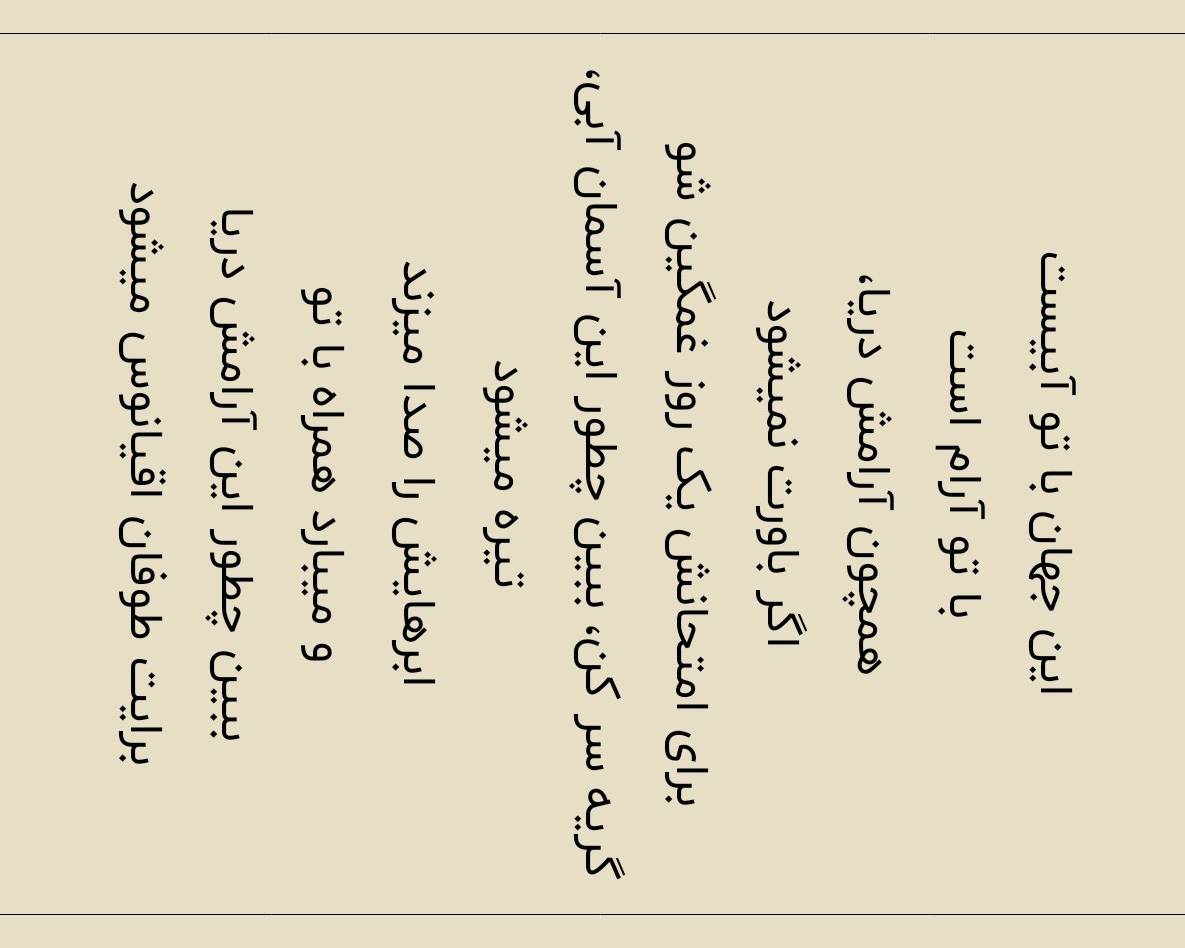 این جهان با تو آبیست
با تو آرام است
همچون آرامش دریا،
اگر باورت نمیشود
برای امتحانش یک روز غمگین شو
گریه سر کن، ببین چطور این آسمان آبی،
تیره میشود
ابرهایش را صدا میزند
و میبارد همراه با تو
ببین چطور این آرامش دریا
برایت طوفان اقیانوس میشود